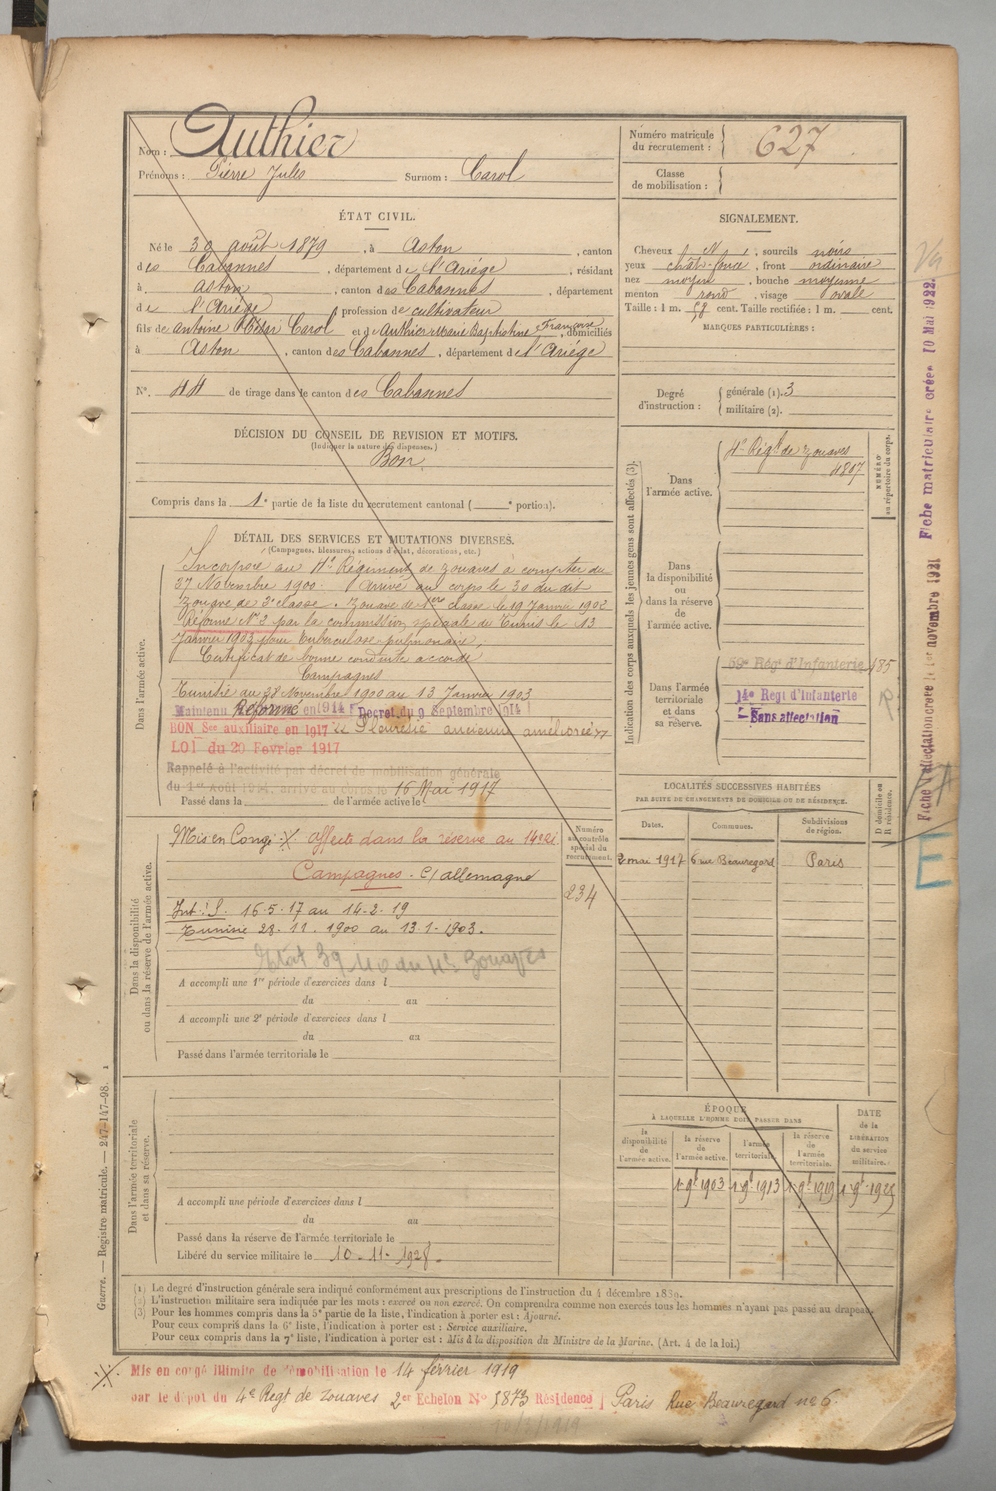 Nom : Authier
Prénoms : Pierre Jules Surnom : Carol
Numéro matricule du recrutement : 627
Classe de mobilisation :
ÉTAT CIVIL.
Né le 30 août 1879, à Aston, canton
des Cabannes, département de l'Ariége, résidant
à Aston, canton des Cabannes, département
de l'Ariége, profession de cultivateur
fils de Antoine César Carol et de Authier Marie Baptistine Françoise, domiciliés
à Aston, canton des Cabannes, département de l'Ariége
N°. 44 de tirage dans le canton des Cabannes
SIGNALEMENT.
Cheveux N, sourcils noirs
yeux chât-foncé, front ordinaire
nez moyen, bouche moyenne
menton rond, visage ovale
Taille : 1 m. 59 cent. Taille rectifiée : 1 m. cent.
MARQUES PARTICULIÈRES :
Degré d'instruction : générale (1). 3
militaire (2).
DÉCISION DU CONSEIL DE REVISION ET MOTIFS.
(Indiquer la nature des dispenses.)
Bon
Compris dans la 1e partie de la liste du recrutement cantonal ( e portion).
DÉTAIL DES SERVICES ET MUTATIONS DIVERSES.
(Campagnes, blessures, actions d'éclat, décorations, etc.)
Dans l'armée active.
Incorporé au 4e Régiment de zouaves à compter du
27 Novembre 1900. Arrivé au corps le 30 du dit
Zouave de 2e classe. Zouave de 1ère classe le 19 Janvier 1902
Réformé N° 2 par la commission spéciale de Tunis le 13
Janvier 1903 pour tuberculose pulmonaire,
Certificat de bonne conduite accordé
Campagnes
Tunisie du 28 Novembre 1900 au 13 Janvier 1903
Maintenu Réformé en 1914 Decret du 9 Septembre 1914
BON Sce auxiliaire en 1917 Pleurésie ancienne améliorée
LOI du 20 Fevrier 1917
Rappelé à l'activité par décret de mobilisation générale
du 1er Août 1914, arrivé au corps le 16 Mai 1917
Passé dans la de l'armée active le
Dans la disponibilité ou dans la réserve de l'armée active.
Mis en Congé affecté dans la réserve au 14e RI
Campagnes - C/ allemagne
Int : S. 16-5-17 au 14-2-19
Tunisie 28. 11. 1900 au 13-1-1903.
Etat 39 110 du 4e Zouaves
A accompli une 1re période d'exercices dans l
du au
A accompli une 2e période d'exercices dans l
du au
Passé dans l'armée territoriale le
Numéro au contrôle spécial du recrutement.
234
Dans l'armée territoriale et dans sa réserve.
A accompli une période d'exercices dans l
du au
Passé dans la réserve de l'armée territoriale le
Libéré du service militaire le 10-11-1928.
Indication des corps auxquels les jeunes gens sont affectés (3).
NUMÉRO au répertoire du corps.
Dans l'armée active. 4e Régt de Zouaves
4807
Dans la disponibilité ou dans la réserve de l'armée active.
Dans l'armée territoriale et dans sa réserve.
59e Rég d'Infanterie 485
14e Regt d'Infanterie
Sans affectation
LOCALITÉS SUCCESSIVES HABITÉES
PAR SUITE DE CHANGEMENTS DE DOMICILE OU DE RÉSIDENCE.
Dates. Communes. Subdivisions de région. D domicile ou R résidence.
2 mai 1917 6 rue Beauregard Paris
ÉPOQUE
À LAQUELLE L'HOMME DOIT PASSER DANS
la disponibilité de l'armée active. la réserve de l'armée active. l'armée territoriale. la réserve de l'armée territoriale.
DATE de la LIBÉRATION du service militaire.
1 9bre 1903 1 9bre 1913 1 9bre 1919 1 9bre 1925
(1) Le degré d'instruction générale sera indiqué conformément aux prescriptions de l'instruction du 4 décembre 1889.
(2) L'instruction militaire sera indiquée par les mots : exercé ou non exercé. On comprendra comme non exercés tous les hommes n'ayant pas passé au drapeau.
(3) Pour les hommes compris dans la 5e partie de la liste, l'indication à porter est : Ajourné.
Pour ceux compris dans la 6e liste, l'indication à porter est : Service auxiliaire.
Pour ceux compris dans la 7e liste, l'indication à porter est : Mis à la disposition du Ministre de la Marine. (Art. 4 de la loi.)
Mis en congé illimité de démobilisation le 14 février 1919
par le dépôt du 4e Regt de Zouaves 2er Echelon N° 1873 Résidence Paris Rue Beauregard n° 6
10/2/1919
Guerre. — Registre matricule. — 247-147-98. 1
Fiche matriculaire créée 10 Mai 1922.
Fiche d'affectation créée le 1er novembre 1921
E